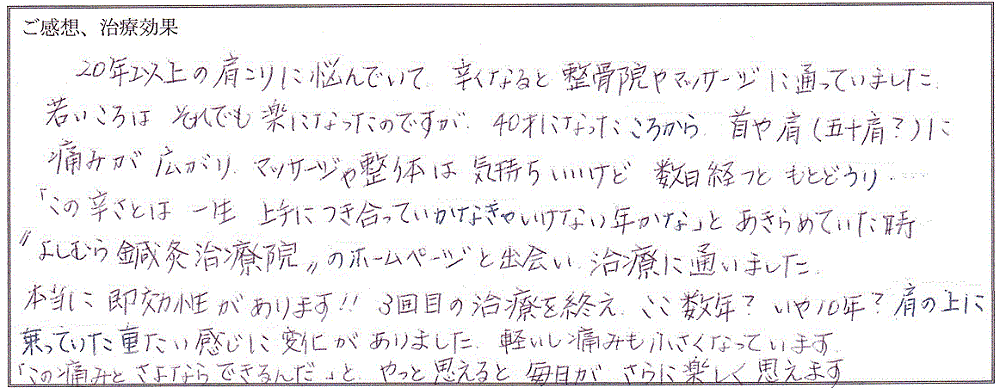 ご感想、治療効果
20年以上の肩こりに悩んでいて、辛くなると整骨院やマッサージに通っていました。
若いころは それでも楽になったのですが、40才になったころから、首や肩(五十肩?)に
痛みが広がり、マッサージや整体は気持ちいいけど 数日経つと もとどうり……
「この辛さとは 一生 上手につき合っていかなきゃいけない年かな」と あきらめていた時
"よしむら鍼灸治療院"のホームページと出会い、治療に通いました。
本当に即効性があります!! 3回目の治療を終え、ここ数年?いや10年?肩の上に
乗っていた重たい感じに変化がありました。軽いし痛みも小さくなっています。
「この痛みとさよならできるんだ」と、やっと思えると 毎日が さらに楽しく思えます